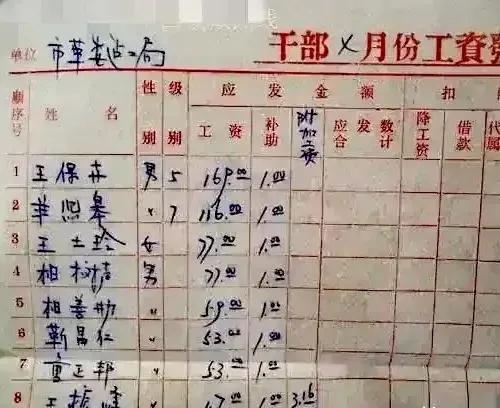 单位 市革委 局 干部 X 月份工資
順序号 姓名 性別 级別 应发金额 扣
工资 补助 附加工资 应发合计数 降工资 借款 代属
1 王保 男 5 169.00 1.00
2 〃 7 116.00 1.00
3 王士玲 女 77.00 1.00
4 相树 男 77.00 1.00
5 相善 〃 59.00 1.00
6 靳昌仁 〃 53.00 1.00
7 曹正邦 〃 53.00 1.00
8 王振 〃 7.00 1.00 3.16